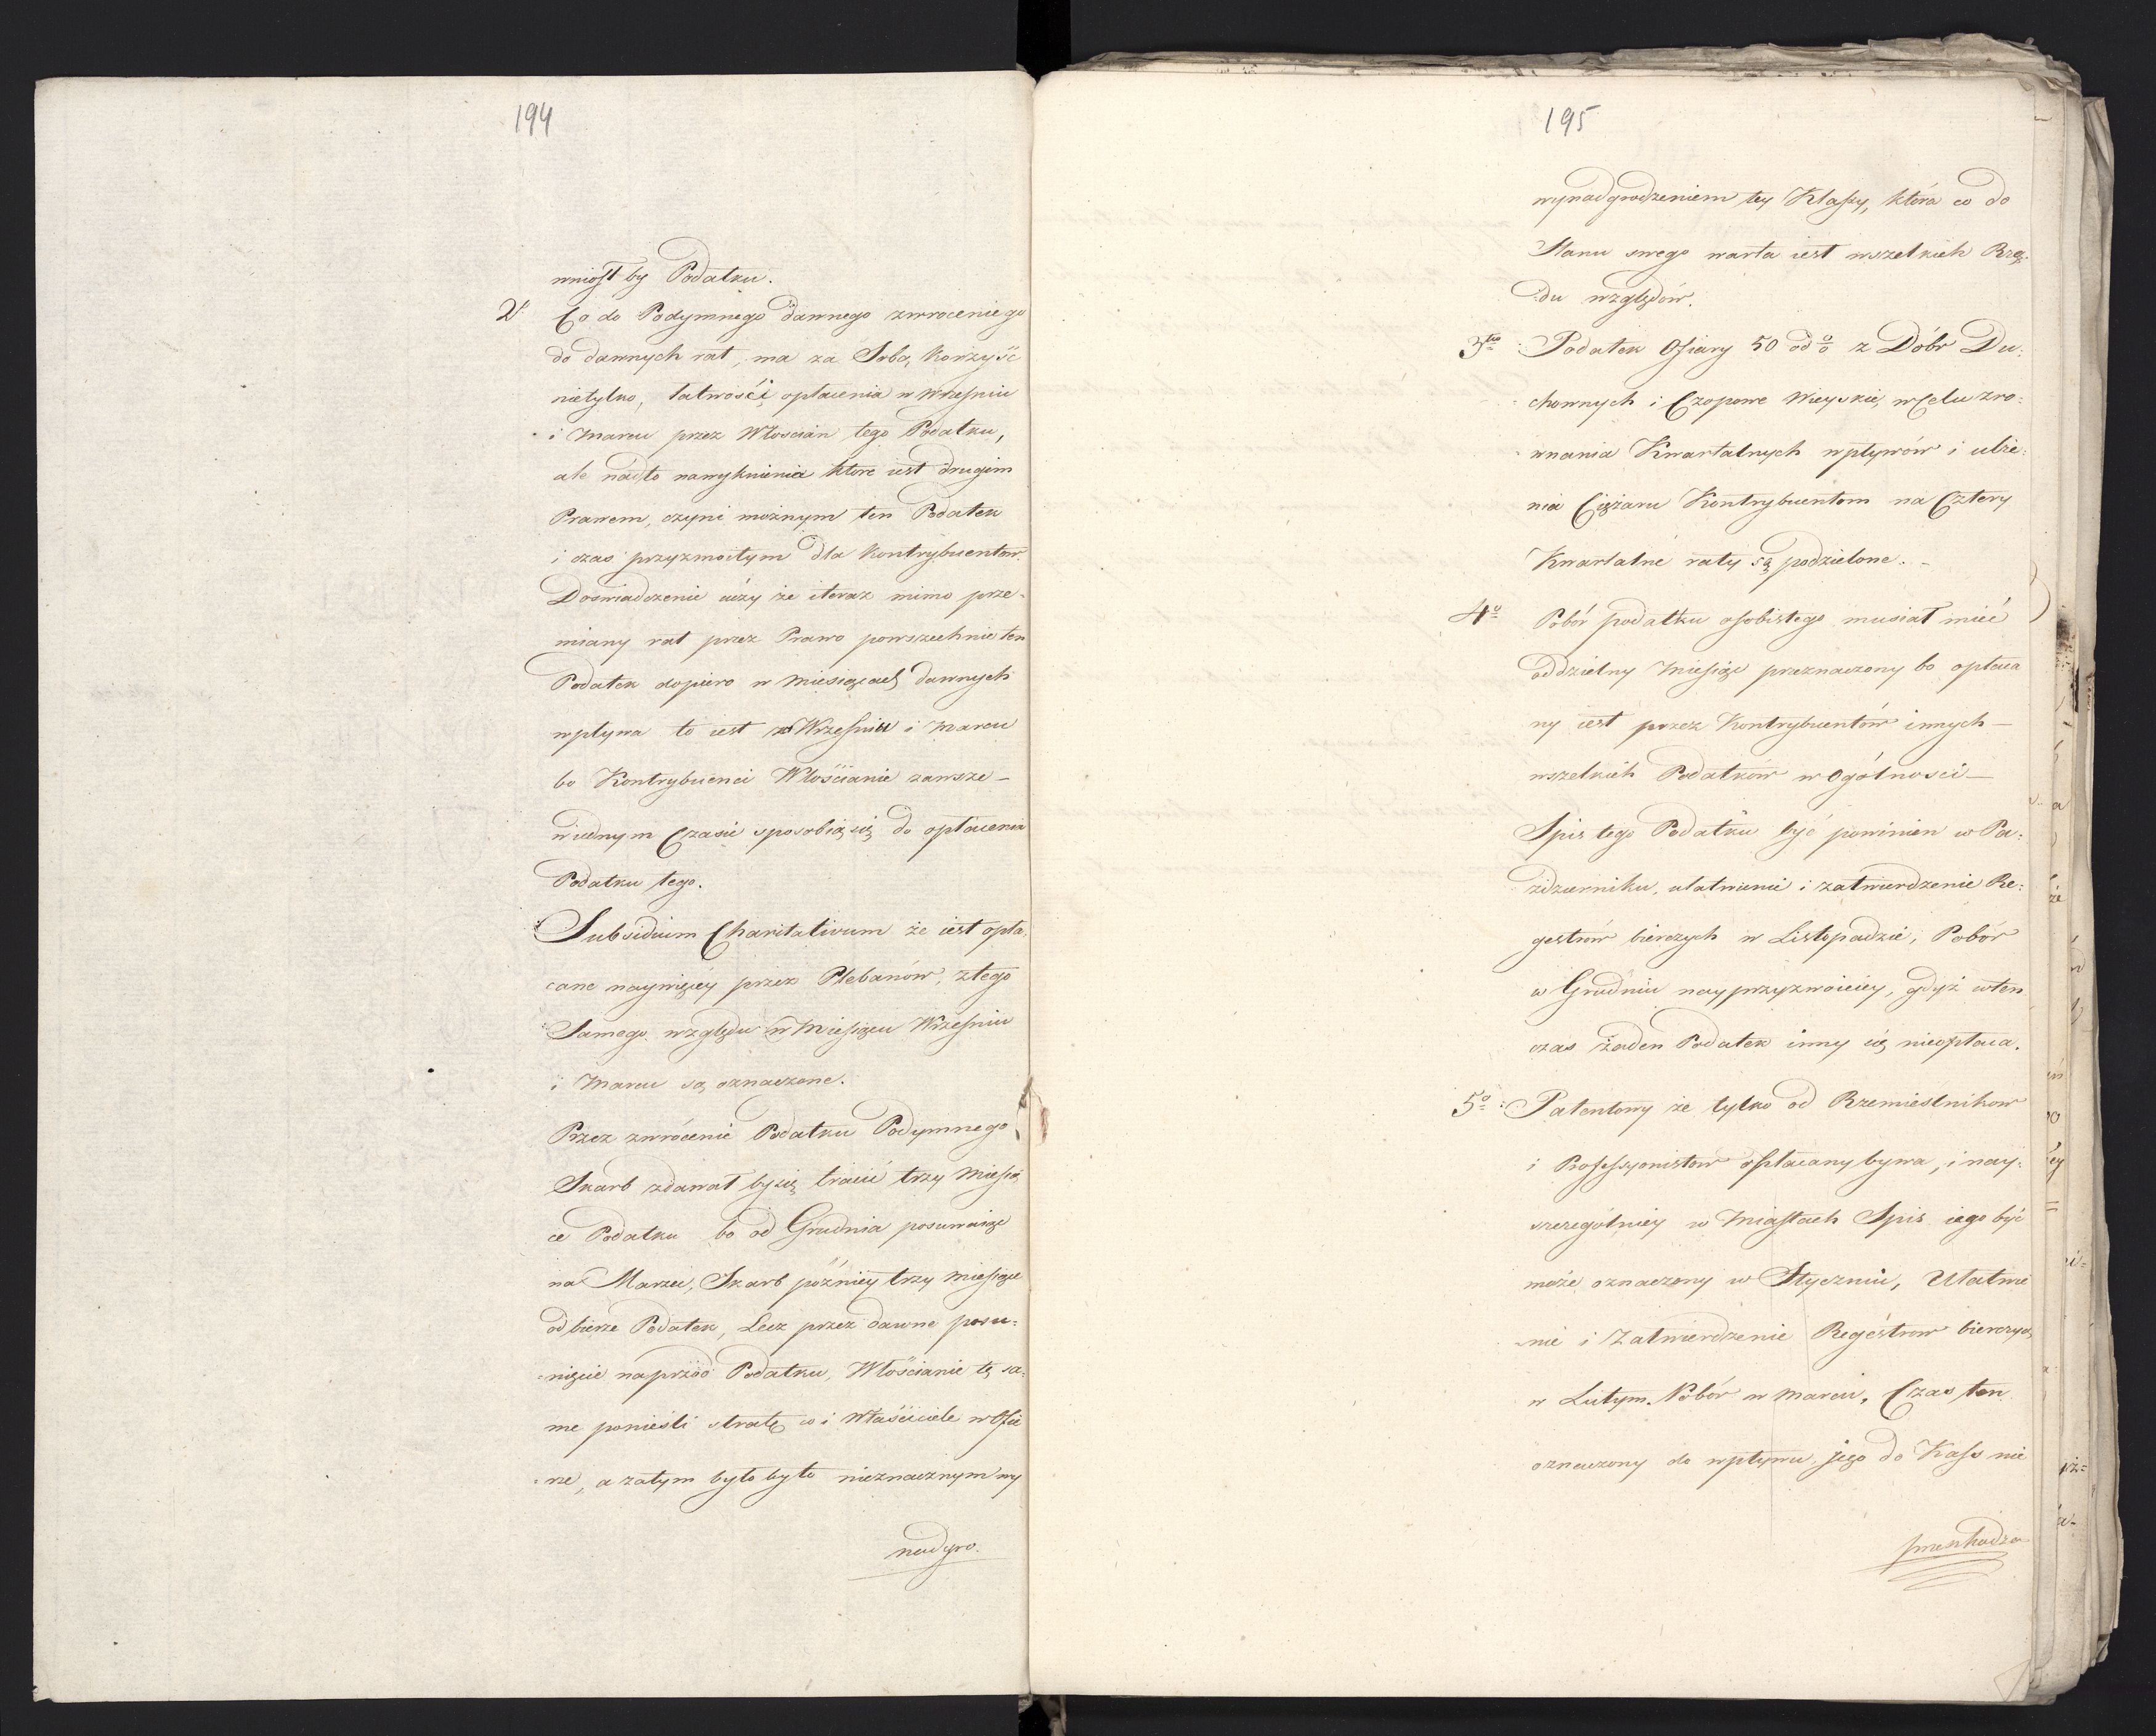 194
wniosł by Podatku.
2° Co do Podymnego dawnego zwrocenie go
do dawnych rat, ma za Sobą korzyść
nietylko, łatwości opłacenia w Wrześniu
i Marcu przez Włoscian tego Podatku,
ale nadto nawyknienia ktore iest drugim
Prawem, czyni możnym ten Podatek
i czas przyzwoitym dla Kontrybuentow.
Doswiadczenie uczy że i teraz mimo prze-
miany rat przez Prawo powszechnie ten
Podatek dopiero w Miesiącach dawnych
wpływa to iest w Wrześniu i Marcu
bo Kontrybuenci Włościanie zawsze –
w iednym Czasie sposobią się do opłacenia
Podatku tego.
Subsidium Charitativum że iest opła:
cane naywięcey przez Plebanów, z tego
Samego względu w Miesiącu Wrześniu
i Marcu są oznaczone.
Przez zwrócenie Podatku Podymnego
Skarb zdawał by się tracić trzy Miesią
ce Podatku bo od Grudnia posuwaiąc
na Marzec, Skarb późniey trzy Miesiące
odbierze Podatek, Lecz przez dawne posu:
:nięcie naprzód Podatku, Włościanie tę sa:
me ponieśli stratę co i Właściciele w Ofie
:rze, a zatym było by to nieznacznym wy
nadgro.
195
wynadgrodzeniem tey Klassy, która co do
Stanu swego warta iest wszelkich Rzą:
:du względów.
3tio Podatek Ofiary 50 od % z Dóbr Du:
:chownych i Czopowe Wieyskie, w Celu zro:
:wnania Kwartalnych wpływów i ulże:
nia Ciężaru Kontrybuentom na Cztery
Kwartalne raty są podzielone. –
4° Pobór podatku osobistego musiał mieć
oddzielny Miesiąc przeznaczony bo opłaca
ny iest przez Kontrybuentów innych –
wszelkich Podatków w Ogólnosci –
Spis tego Podatku być powinien w Pa:
zdzierniku, ułatwienie i zatwierdzenie Re:
gestrów bierczych w Listopadzie, Pobór
w Grudniu nayprzyzwoiciey, gdyż w ten
czas żaden Podatek inny się nieopłaca.
5° : Patentowy że tylko od Rzemieślnikow
i Professyonistow opłacany bywa, i nay:
szczególniey w Miastach Spis iego być
może oznaczony w Styczniu, Ułatwie
:nie i Zatwierdzenie Regestrow bierczych
w Lutym. Pobór w Marcu, Czas ten
oznaczony do wpływu jego do Kass nie
przeszkadza